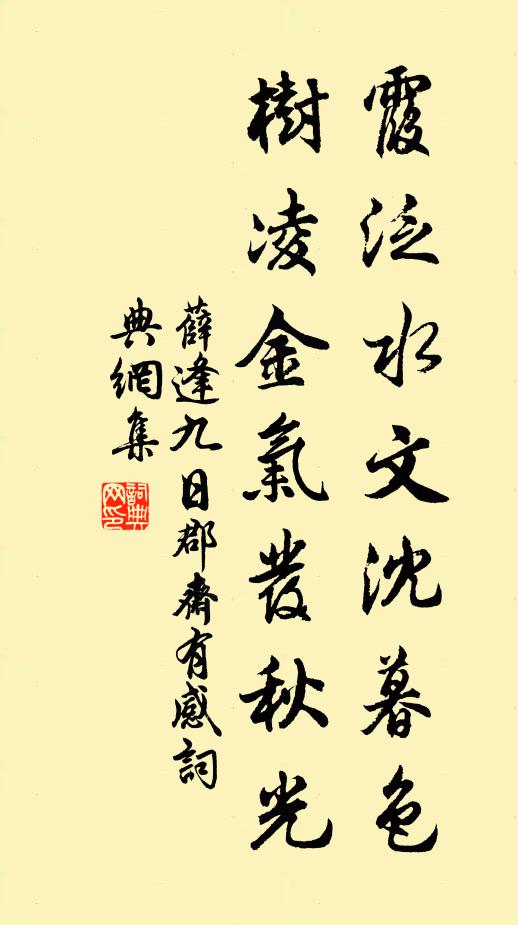 霞泛水文沈暮色
樹凌金氣發秋光
薛逢九日郡齋有感詞
典網集
詞典網印